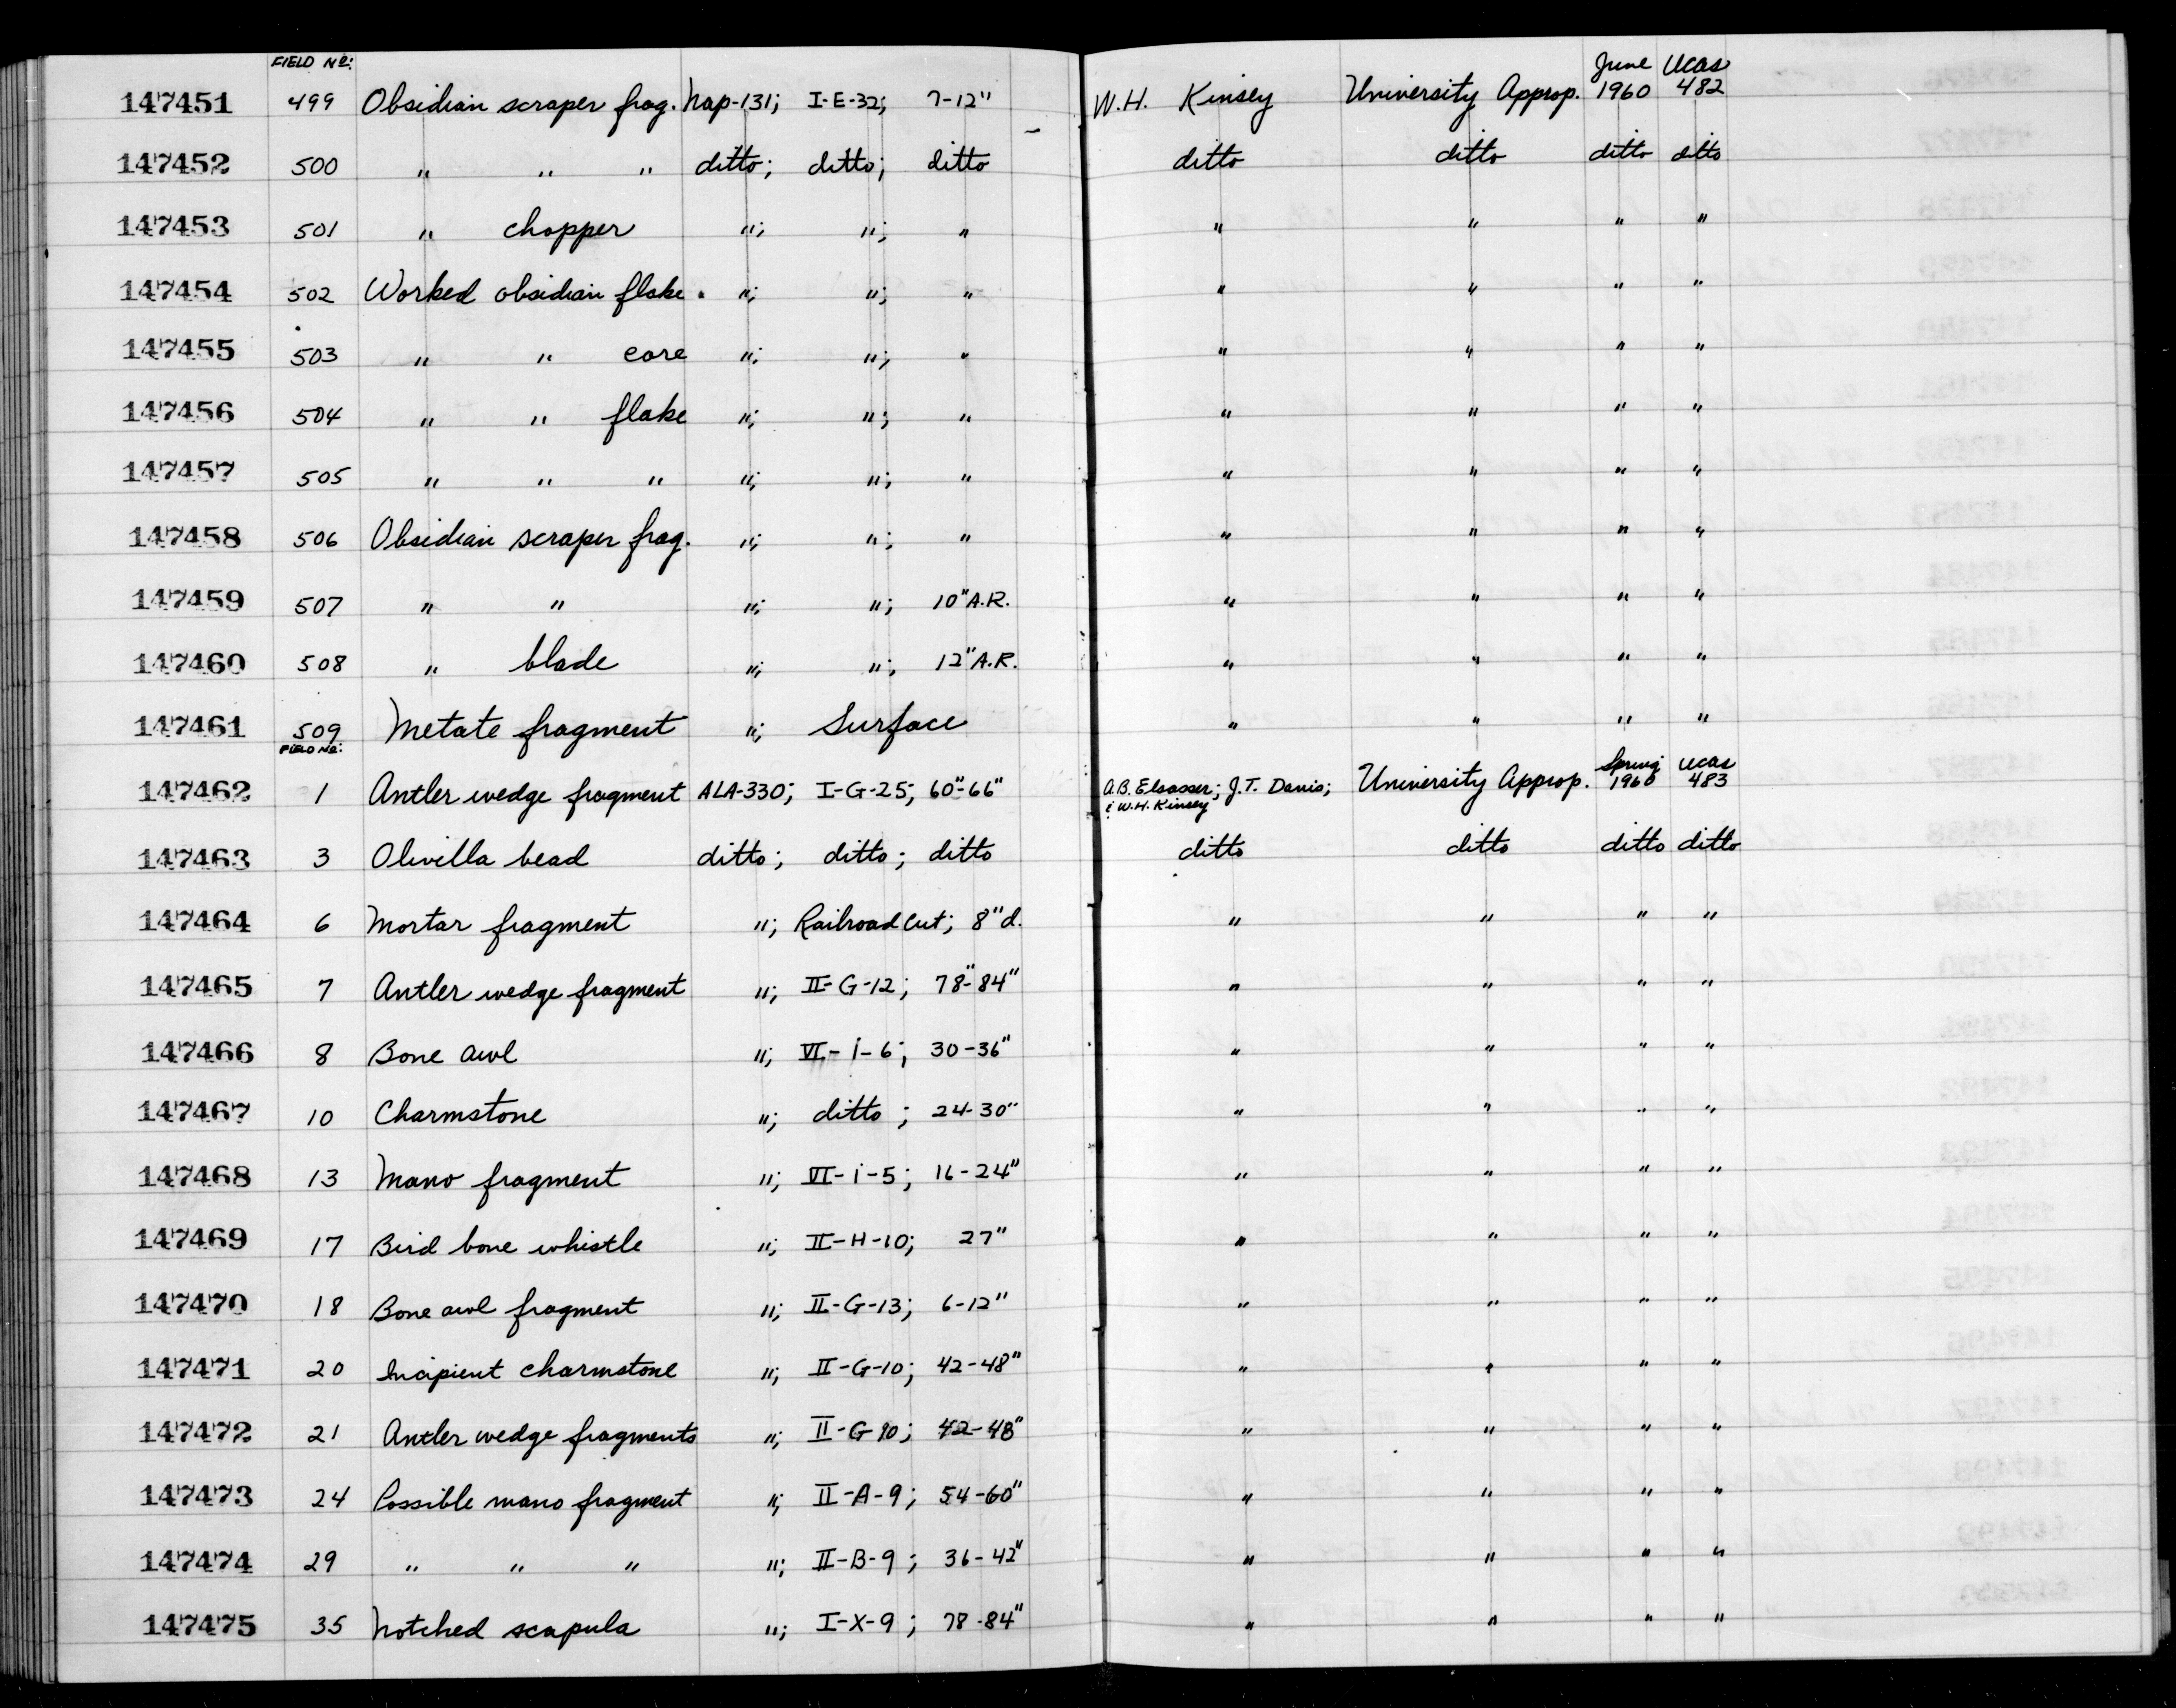 FIELD No: June UCAS
147451 499 Obsidian scraper frag. Nap-131; I-E-32; 7-12" W.H. Kinsey University Approp. 1960 482
147452 500 " " " ditto; ditto; ditto ditto ditto ditto ditto
147453 501 " chopper "; "; " " " " "
147454 502 Worked obsidian flake. "; "; " " " " "
147455 503 " " core "; "; " " " " "
147456 504 " " flake "; "; " " " " "
147457 505 " " " "; "; " " " " "
147458 506 Obsidian scraper frag. "; "; " " " " "
147459 507 " " "; "; 10" A.R. " " " "
147460 508 " blade "; "; 12" A.R. " " " "
147461 509 Metate fragment "; Surface " " " "
FIELD No: Spring UCAS
147462 1 Antler wedge fragment ALA-330; I-G-25; 60"-66" A.B. Elsasser; J.T. Davis; University Approp. 1960 483
& W.H. Kinsey
147463 3 Olivella bead ditto; ditto; ditto ditto ditto ditto ditto
147464 6 Mortar fragment "; Railroad cut; 8" d. " " " "
147465 7 Antler wedge fragment "; II-G-12; 78"-84" " " " "
147466 8 Bone awl "; VI-i-6; 30-36" " " " "
147467 10 Charmstone "; ditto; 24-30" " " " "
147468 13 Mano fragment "; VI-i-5; 16-24" " " " "
147469 17 Bird bone whistle "; II-H-10; 27" " " " "
147470 18 Bone awl fragment "; II-G-13; 6-12" " " " "
147471 20 Incipient charmstone "; II-G-10; 42-48" " " " "
147472 21 Antler wedge fragments "; II-G 10; 42-48" " " " "
147473 24 Possible mano fragment "; II-A-9; 54-60" " " " "
147474 29 " " " "; II-B-9; 36-42" " " " "
147475 35 Notched scapula "; I-X-9; 78-84" " " " "